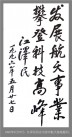 发展航天事业
攀登科技高峰
江泽民
一九九六年五月廿七日